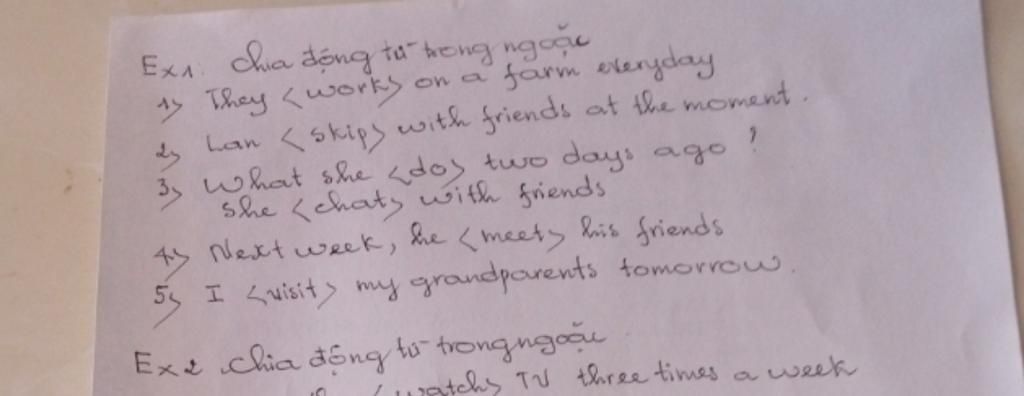 Ex1: Chia động từ trong ngoặc
1> They <work> on a farm everyday
2> Lan <skip> with friends at the moment.
3> What she <do> two days ago?
She <chat> with friends
4> Next week, he <meet> his friends
5> I <visit> my grandparents tomorrow.
Ex2 Chia động từ trong ngoặc
<watch> TV three times a week